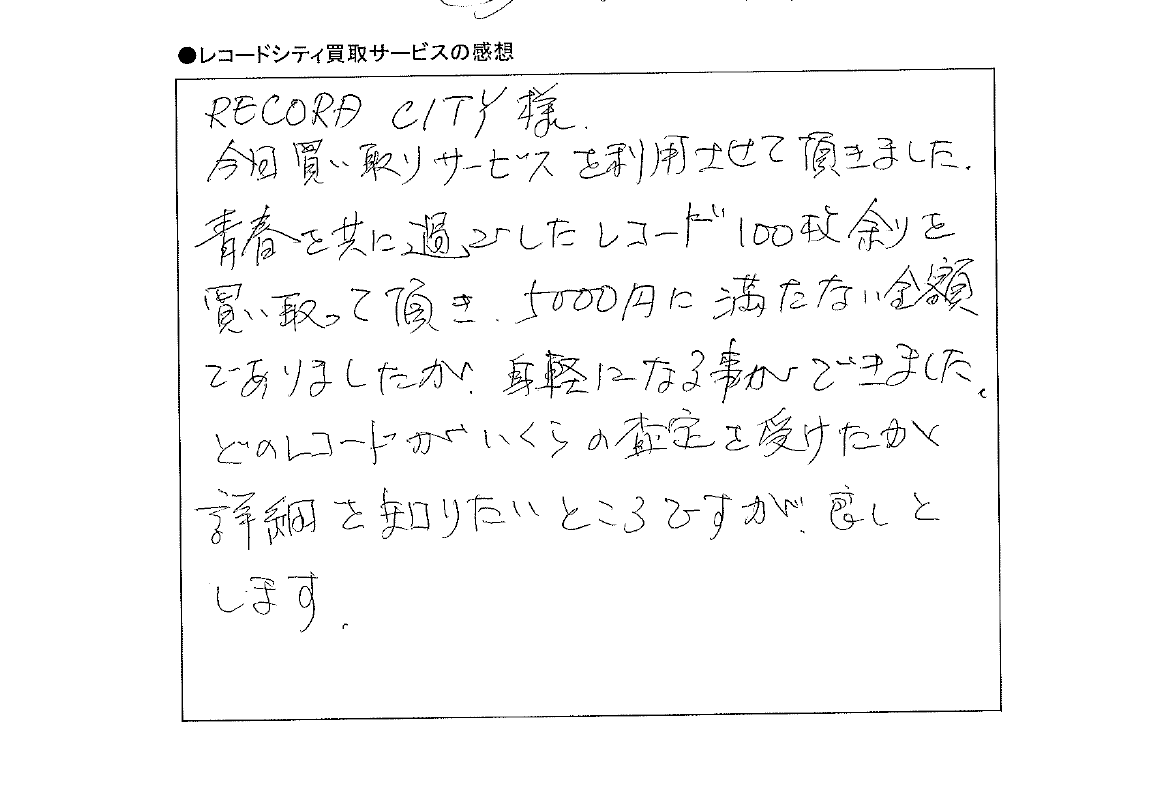 ●レコードシティ買取サービスの感想
RECORD CITY 様.
今回買い取りサービスを利用させて頂きました.
青春を共に過ごしたレコード100枚余りを
買い取って頂き、5000円に満たない金額
でありましたが、身軽になる事ができました。
どのレコードがいくらの査定を受けたか
詳細を知りたいところですが、良しと
します.